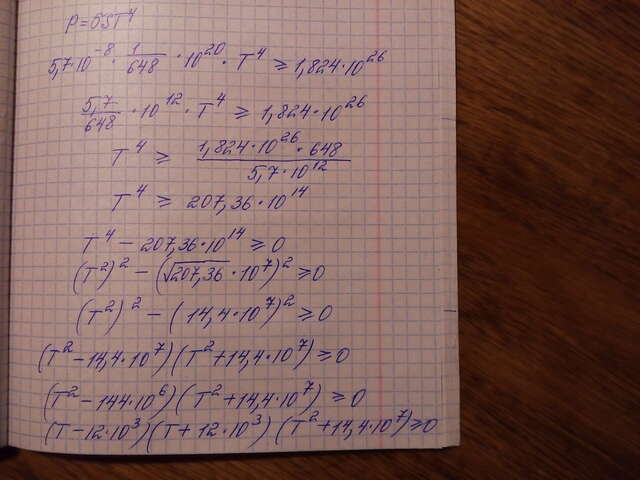 P=δST⁴
5,7·10⁻⁸ · 1/648 · 10²⁰ · T⁴ ⩾ 1,824·10²⁶
5,7/648 · 10¹² · T⁴ ⩾ 1,824·10²⁶
T⁴ ⩾ 1,824·10²⁶·648 / 5,7·10¹²
T⁴ ⩾ 207,36·10¹⁴
T⁴ − 207,36·10¹⁴ ⩾ 0
(T²)² − (√207,36·10⁷)² ⩾ 0
(T²)² − (14,4·10⁷)² ⩾ 0
(T²−14,4·10⁷)(T²+14,4·10⁷) ⩾ 0
(T²−144·10⁶)(T²+14,4·10⁷) ⩾ 0
(T−12·10³)(T+12·10³)(T²+14,4·10⁷) ⩾ 0